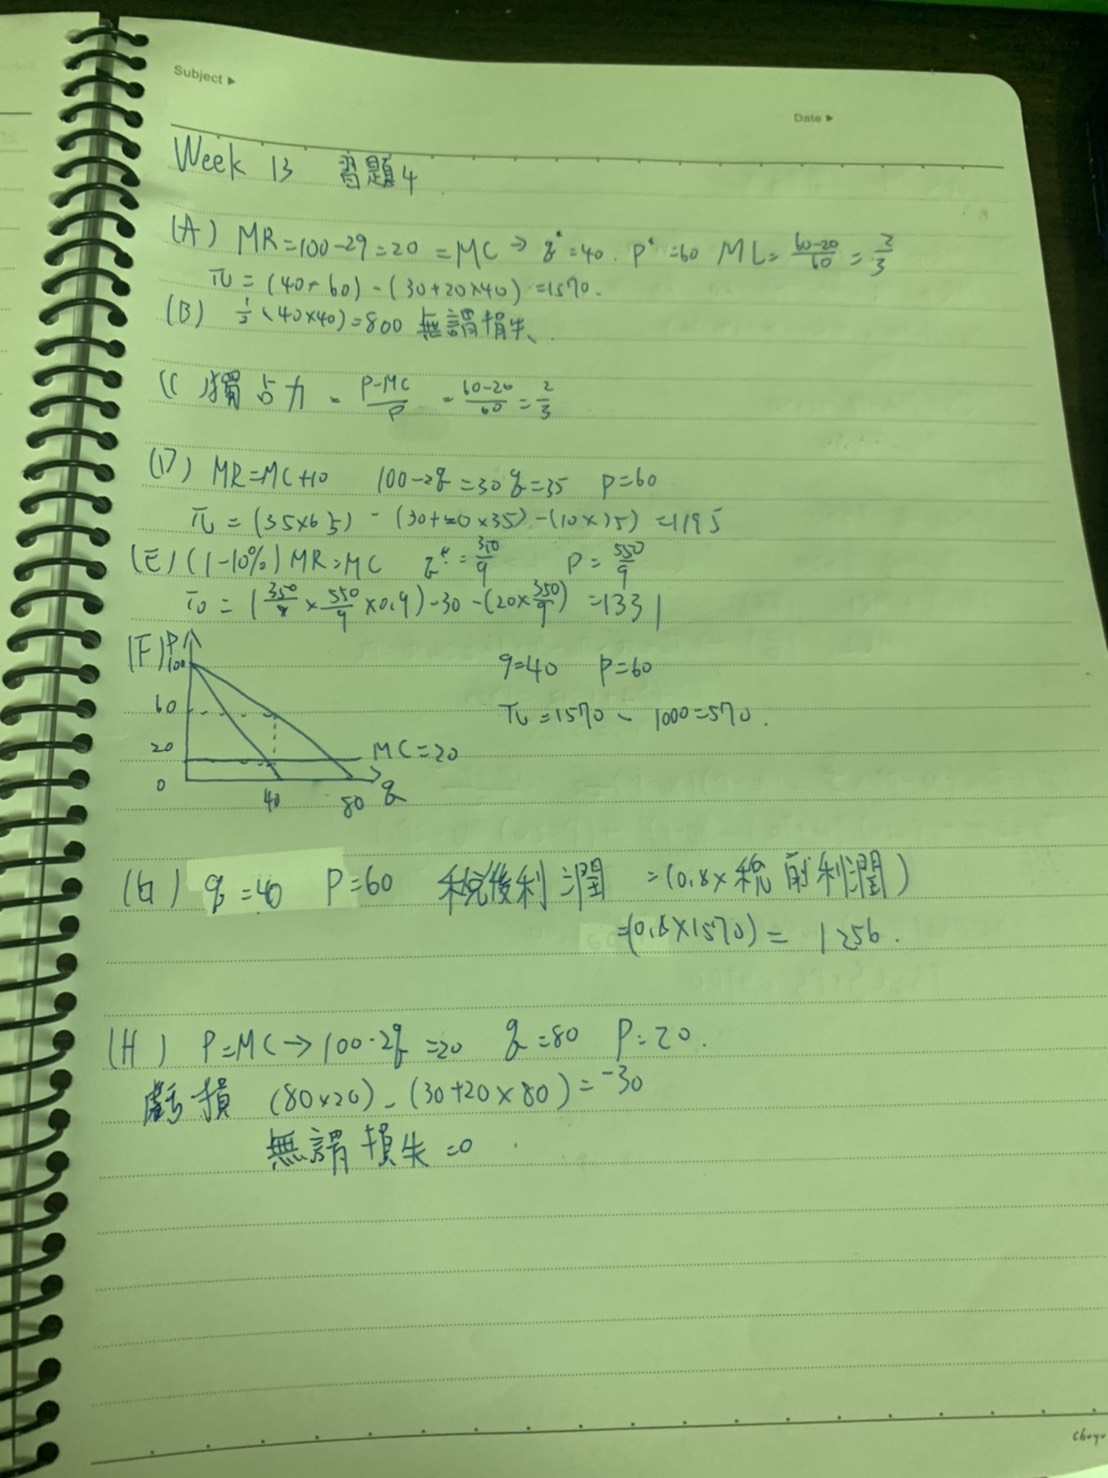 Subject ▶
Date ▶
Week 13 習題4
(A) MR=100-2q=20=MC → q*=40. P*=60 ML= 60-20/60 = 2/3
π = (40×60) - (30+20×40) =1570.
(B) 1/2 (40×40)=800 無謂損失
(C) 獨占力 = P-MC/P = 60-20/60 = 2/3
(D) MR=MC+10 100-2q=30 q=35 P=60
π = (35×65) - (30+20×35) -(10×35) =1195
(E) (1-10%) MR=MC q*= 350/9 P= 550/9
π = (350/9 × 550/9 ×0.9) -30 -(20×350/9) =1331
(F) P
100
60
20
0
40
80
q
MC=20
q=40 P=60
π =1570 - 1000=570.
(G) q=40 P=60 稅後利潤 =(0.8×稅前利潤)
=(0.8×1570) = 1256.
(H) P=MC→100-2q=20 q=80 P=20.
虧損 (80×20) - (30+20×80) = -30
無謂損失=0